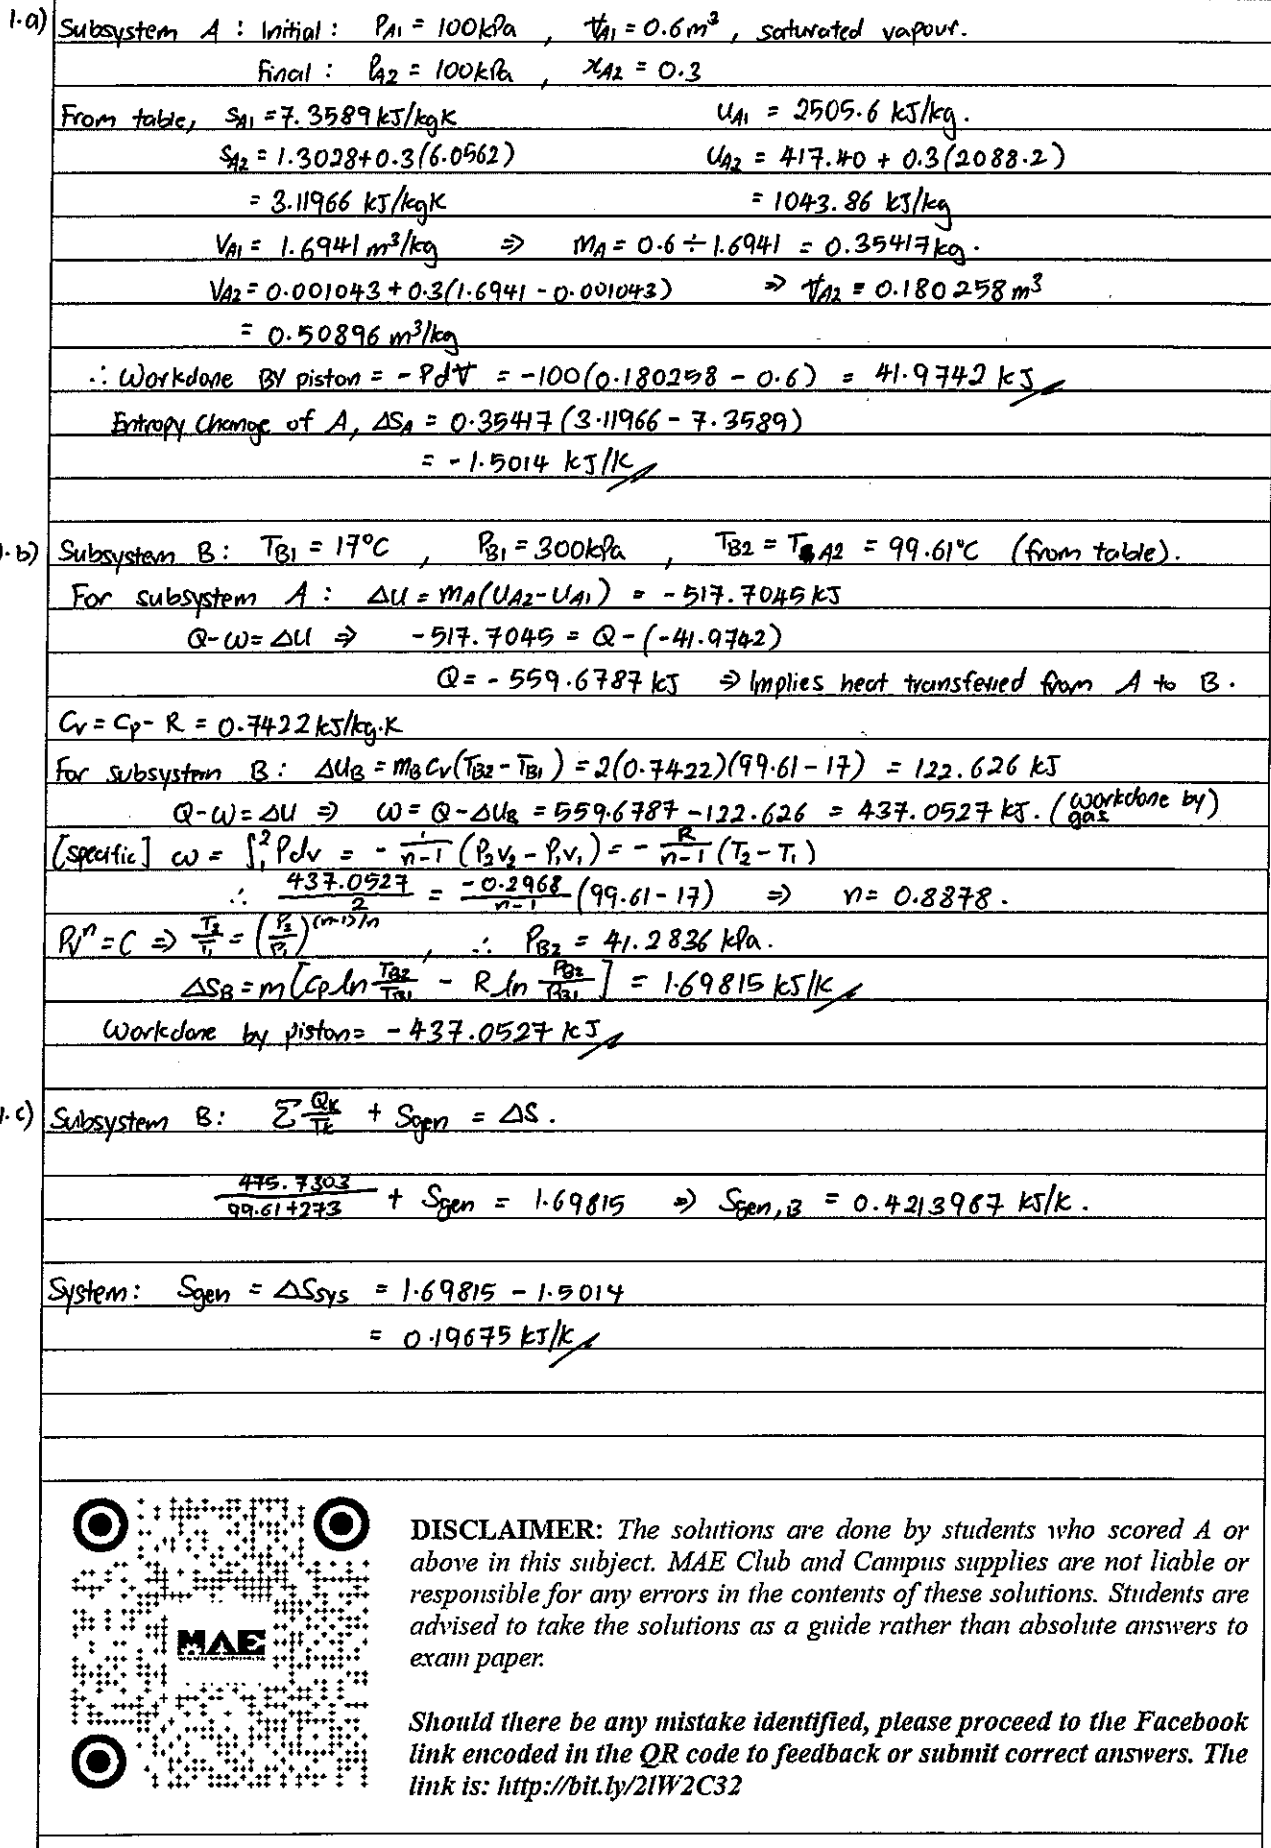 1.a) Subsystem A : Initial : P_A1 = 100kPa , V_A1 = 0.6m³ , saturated vapour.
Final : P_A2 = 100kPa , x_A2 = 0.3
From table, S_A1 = 7.3589 kJ/kgK U_A1 = 2505.6 kJ/kg.
S_A2 = 1.3028+0.3(6.0562) U_A2 = 417.40 + 0.3(2088.2)
= 3.11966 kJ/kgK = 1043.86 kJ/kg
V_A1 = 1.6941 m³/kg ⇒ m_A = 0.6 ÷ 1.6941 = 0.35417kg.
V_A2 = 0.001043 + 0.3(1.6941 - 0.001043) ⇒ V_A2 = 0.180258m³
= 0.50896 m³/kg
∴ Workdone BY piston = -PdV = -100(0.180258 - 0.6) = 41.9742 kJ
Entropy Change of A, ΔS_A = 0.35417(3.11966 - 7.3589)
= -1.5014 kJ/K
1.b) Subsystem B: T_B1 = 17°C , P_B1 = 300kPa , T_B2 = T_A2 = 99.61°C (from table).
For subsystem A : ΔU = m_A(U_A2-U_A1) = -517.7045kJ
Q-W = ΔU ⇒ -517.7045 = Q-(-41.9742)
Q = -559.6787 kJ ⇒ Implies heat transferred from A to B.
Cv = Cp - R = 0.7422 kJ/kg.K
For subsystem B: ΔU_B = m_B Cv(T_B2-T_B1) = 2(0.7422)(99.61-17) = 122.626 kJ
Q-W = ΔU ⇒ W = Q-ΔU_B = 559.6787-122.626 = 437.0527 kJ. (workdone by gas)
[specific] w = ∫₁² Pdv = - 1/(n-1) (P₂v₂ - P₁v₁) = - R/(n-1) (T₂-T₁)
∴ 437.0527/2 = -0.2968/(n-1) (99.61-17) ⇒ n = 0.8878.
Pvⁿ = C ⇒ T₂/T₁ = (P₂/P₁)^((n-1)/n) , ∴ P_B2 = 41.2836 kPa.
ΔS_B = m[Cp ln T_B2/T_B1 - R ln P_B2/P_B1] = 1.69815 kJ/K
Workdone by piston = -437.0527 kJ
1.c) Subsystem B: Σ Qk/Tk + Sgen = ΔS.
475.7303/(99.61+273) + Sgen = 1.69815 ⇒ Sgen,B = 0.4213967 kJ/K.
System: Sgen = ΔSsys = 1.69815 - 1.5014
= 0.19675 kJ/K
MAE
DISCLAIMER: The solutions are done by students who scored A or
above in this subject. MAE Club and Campus supplies are not liable or
responsible for any errors in the contents of these solutions. Students are
advised to take the solutions as a guide rather than absolute answers to
exam paper.
Should there be any mistake identified, please proceed to the Facebook
link encoded in the QR code to feedback or submit correct answers. The
link is: http://bit.ly/2lW2C32